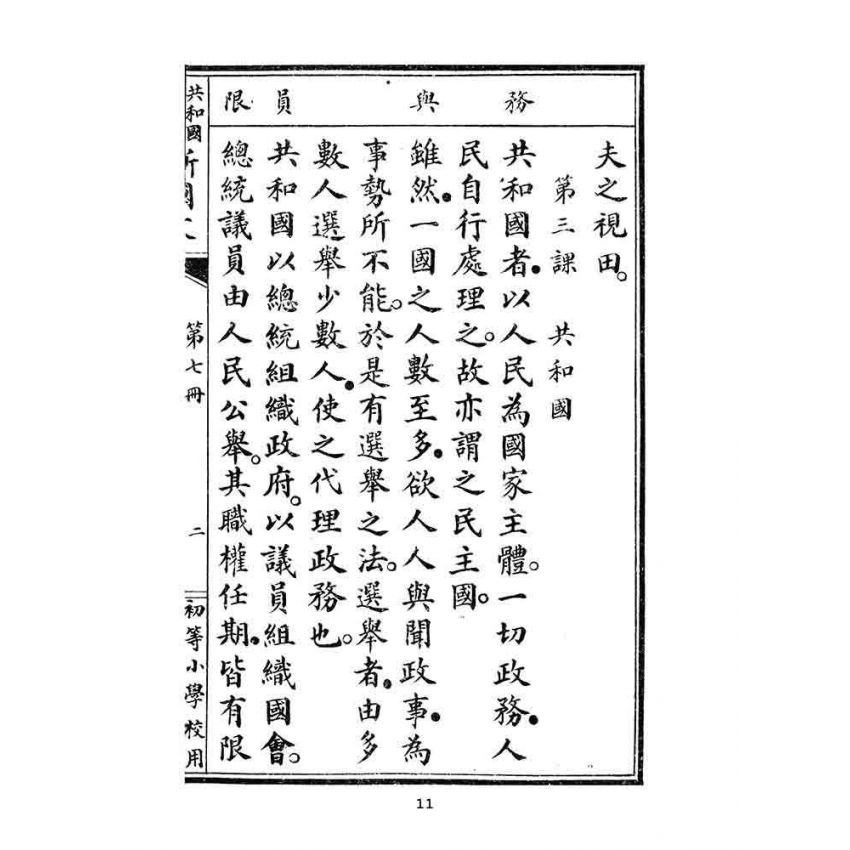 務 與 員 限
夫之視田。
第三課 共和國
共和國者.以人民為國家主體。一切政務.人
民自行處理之。故亦謂之民主國。
雖然.一國之人數至多.欲人人與聞政事.為
事勢所不能。於是有選舉之法。選舉者.由多
數人選舉少數人.使之代理政務也。
共和國以總統組織政府。以議員組織國會。
總統議員由人民公舉。其職權任期.皆有限
共和國
第七冊 二 初等小學校用
11